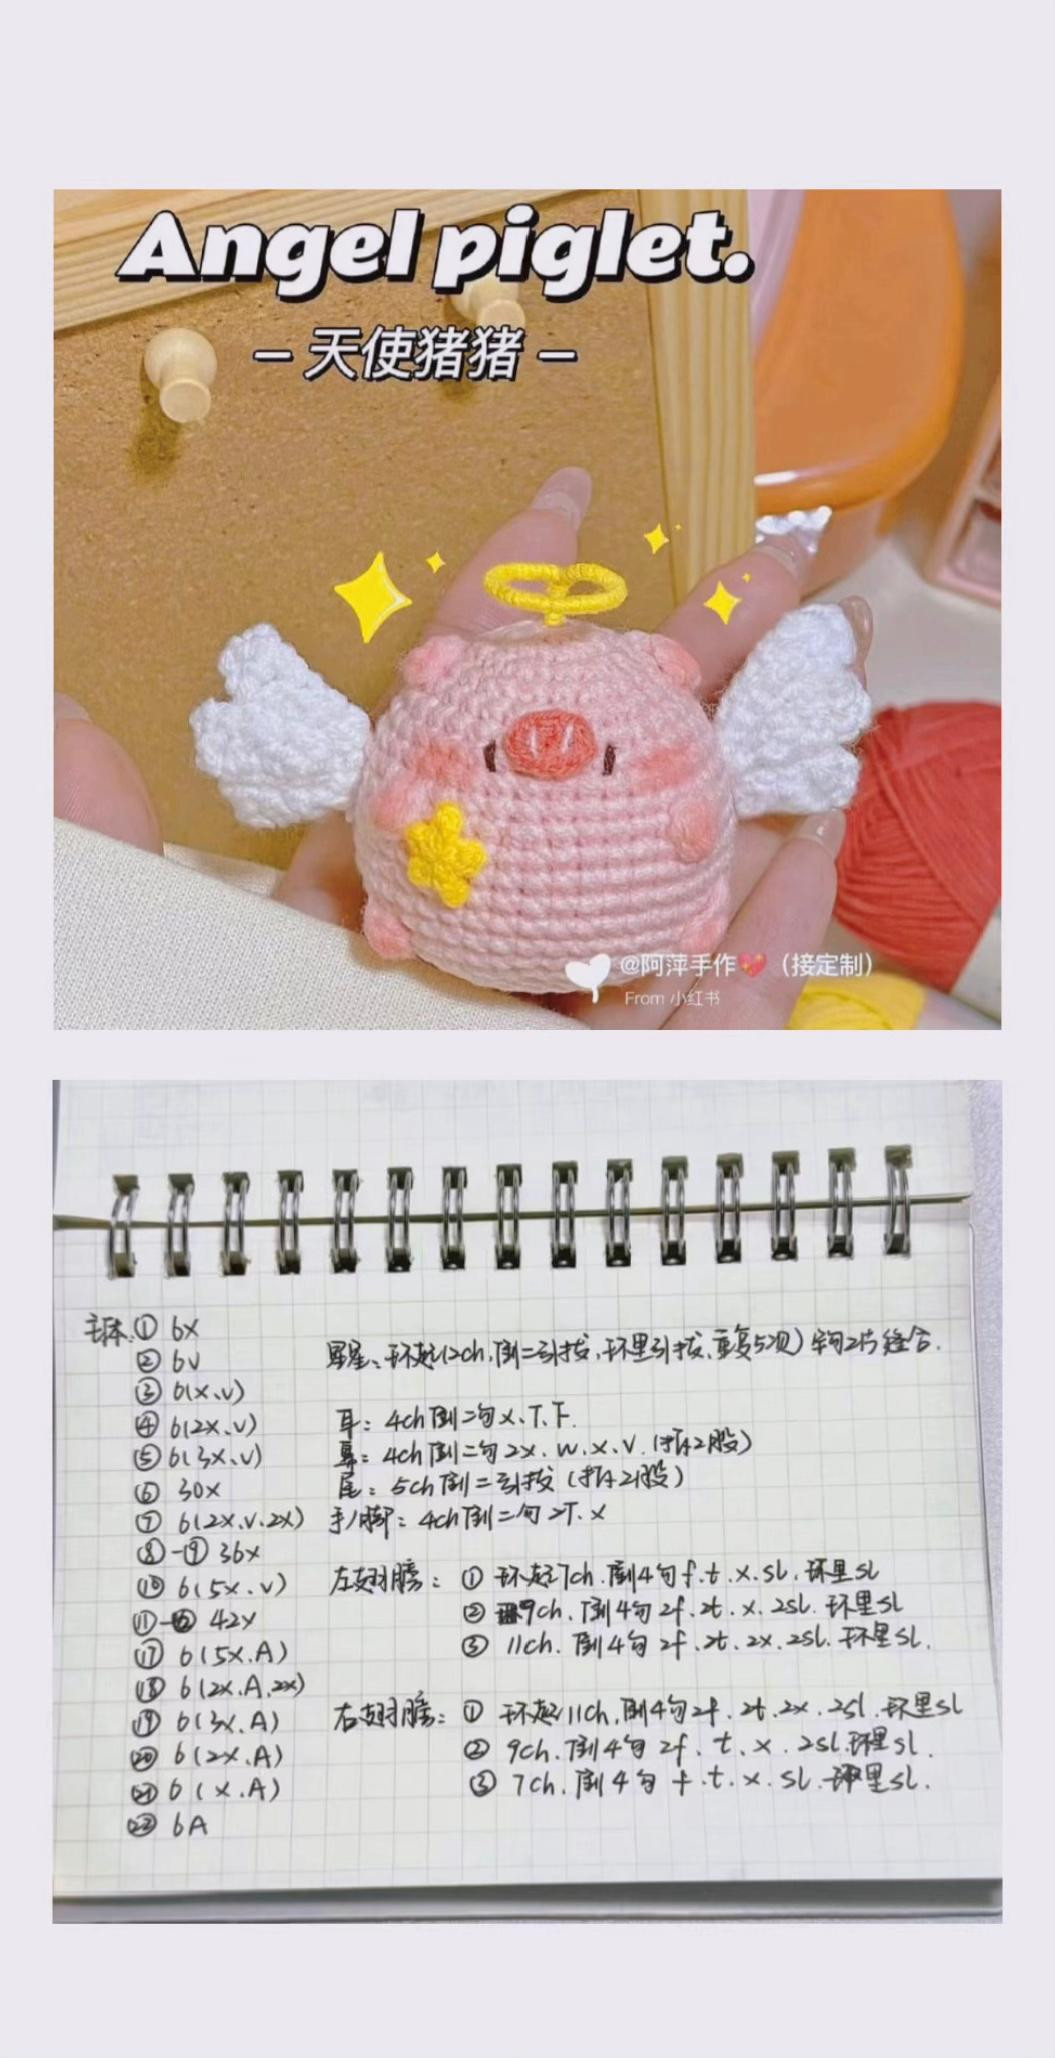 Angel piglet.
– 天使猪猪 –
@阿萍手作💖（接定制）
From 小红书
主体: ① 6X
② 6V
③ 6(X、V)
④ 6(2X、V)
⑤ 6(3X、V)
⑥ 30X
⑦ 6(2X.V.2X)
⑧-⑨ 36X
⑩ 6(5X.V)
⑪-⑯ 42X
⑰ 6(5X.A)
⑱ 6(2X.A.2X)
⑲ 6(3X.A)
⑳ 6(2X.A)
㉑ 6(X.A)
㉒ 6A
星星: 环起(2ch,倒二引拔,环里引拔,重复5次) 钩2片缝合.
耳: 4ch倒二勾X、T、F.
鼻: 4ch倒二勾2X.W.X.V.(拆2股)
尾: 5ch倒二引拔(拆2股)
手/脚: 4ch倒二勾2T.X
左翅膀: ① 环起7ch.倒4勾f.t.X.SL.环里SL
② 9ch.倒4勾2f.2t.X.2SL.环里SL
③ 11ch.倒4勾2f.2t.2X.2SL.环里SL.
右翅膀: ① 环起11ch.倒4勾2f.2t.2X.2SL.环里SL
② 9ch.倒4勾2f.t.X.2SL.环里SL.
③ 7ch.倒4勾f.t.X.SL.环里SL.